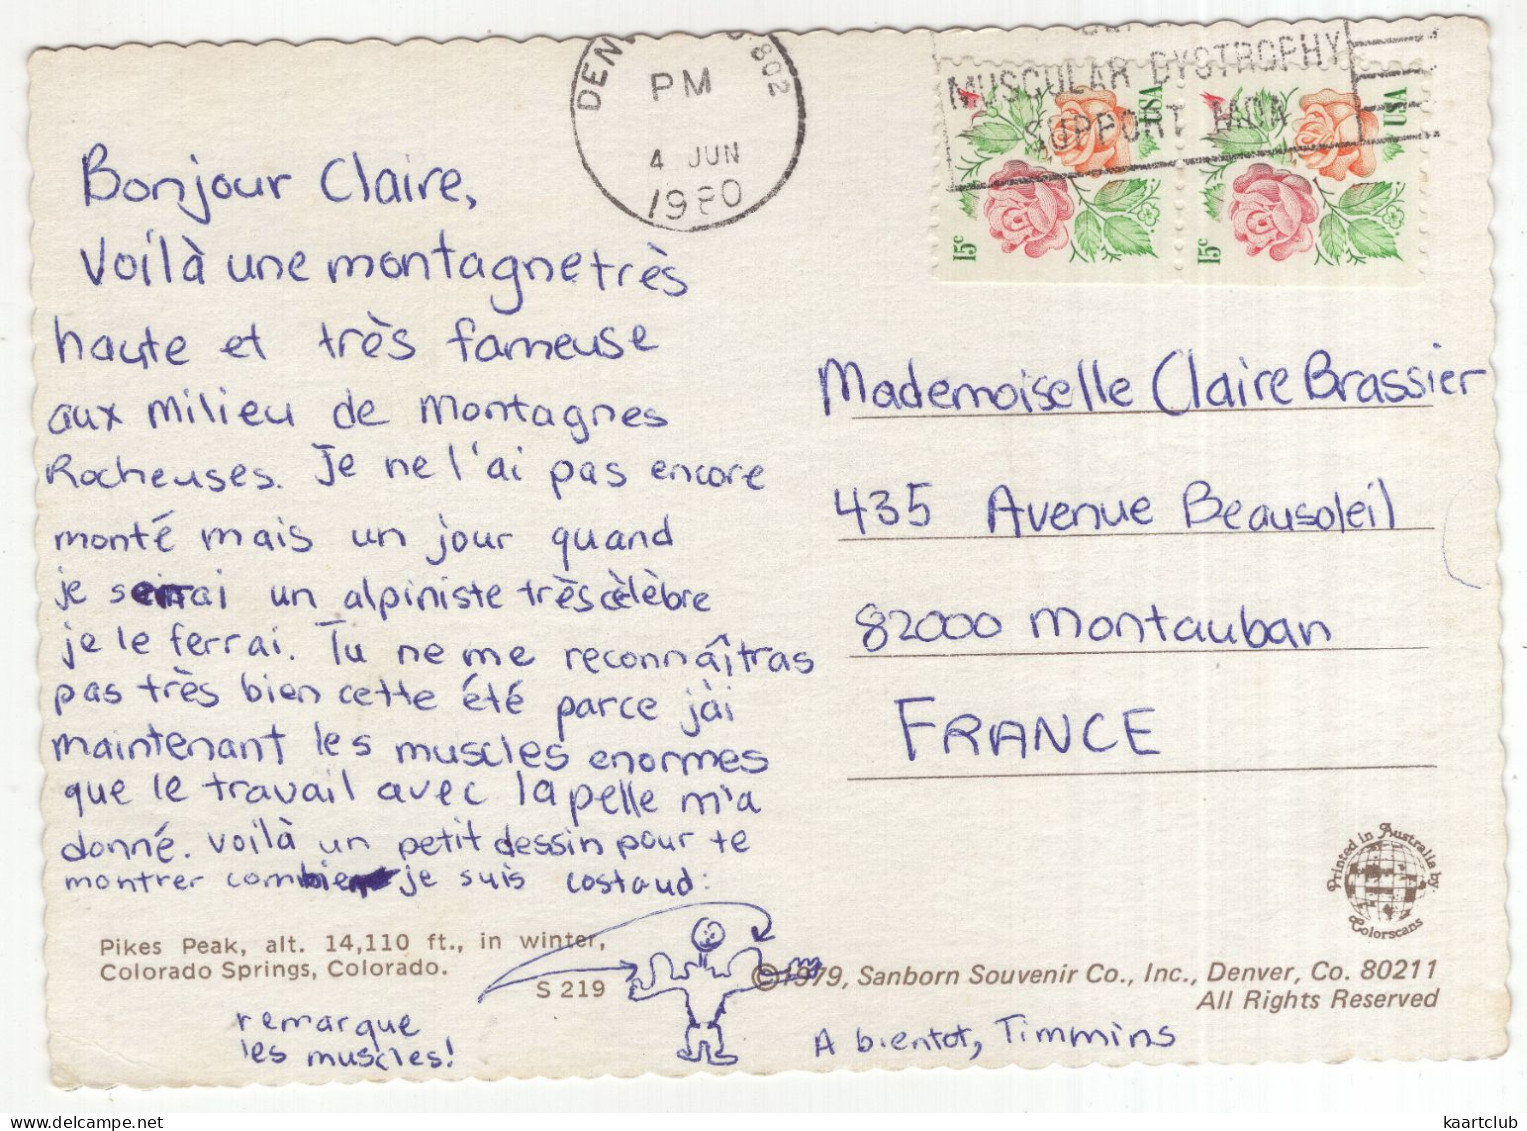 PM
4 JUN
1980
802
MUSCULAR DYSTROPHY
SUPPORT MDA
USA
15c
USA
15c
Bonjour Claire,
Voilà une montagne très
haute et très fameuse
aux milieu de montagnes
Rocheuses. Je ne l'ai pas encore
monté mais un jour quand
je serai un alpiniste très célèbre
je le ferrai. Tu ne me reconnaîtras
pas très bien cette été parce j'ai
maintenant les muscles enormes
que le travail avec la pelle m'a
donné. Voilà un petit dessin pour te
montrer combien je suis costaud:
remarque
les muscles!
A bientot, Timmins
Mademoiselle Claire Brassier
435 Avenue Beausoleil
82000 Montauban
FRANCE
Printed in Australia by
Colorscans
Pikes Peak, alt. 14,110 ft., in winter,
Colorado Springs, Colorado.
S 219
©1979, Sanborn Souvenir Co., Inc., Denver, Co. 80211
All Rights Reserved
kaartclub